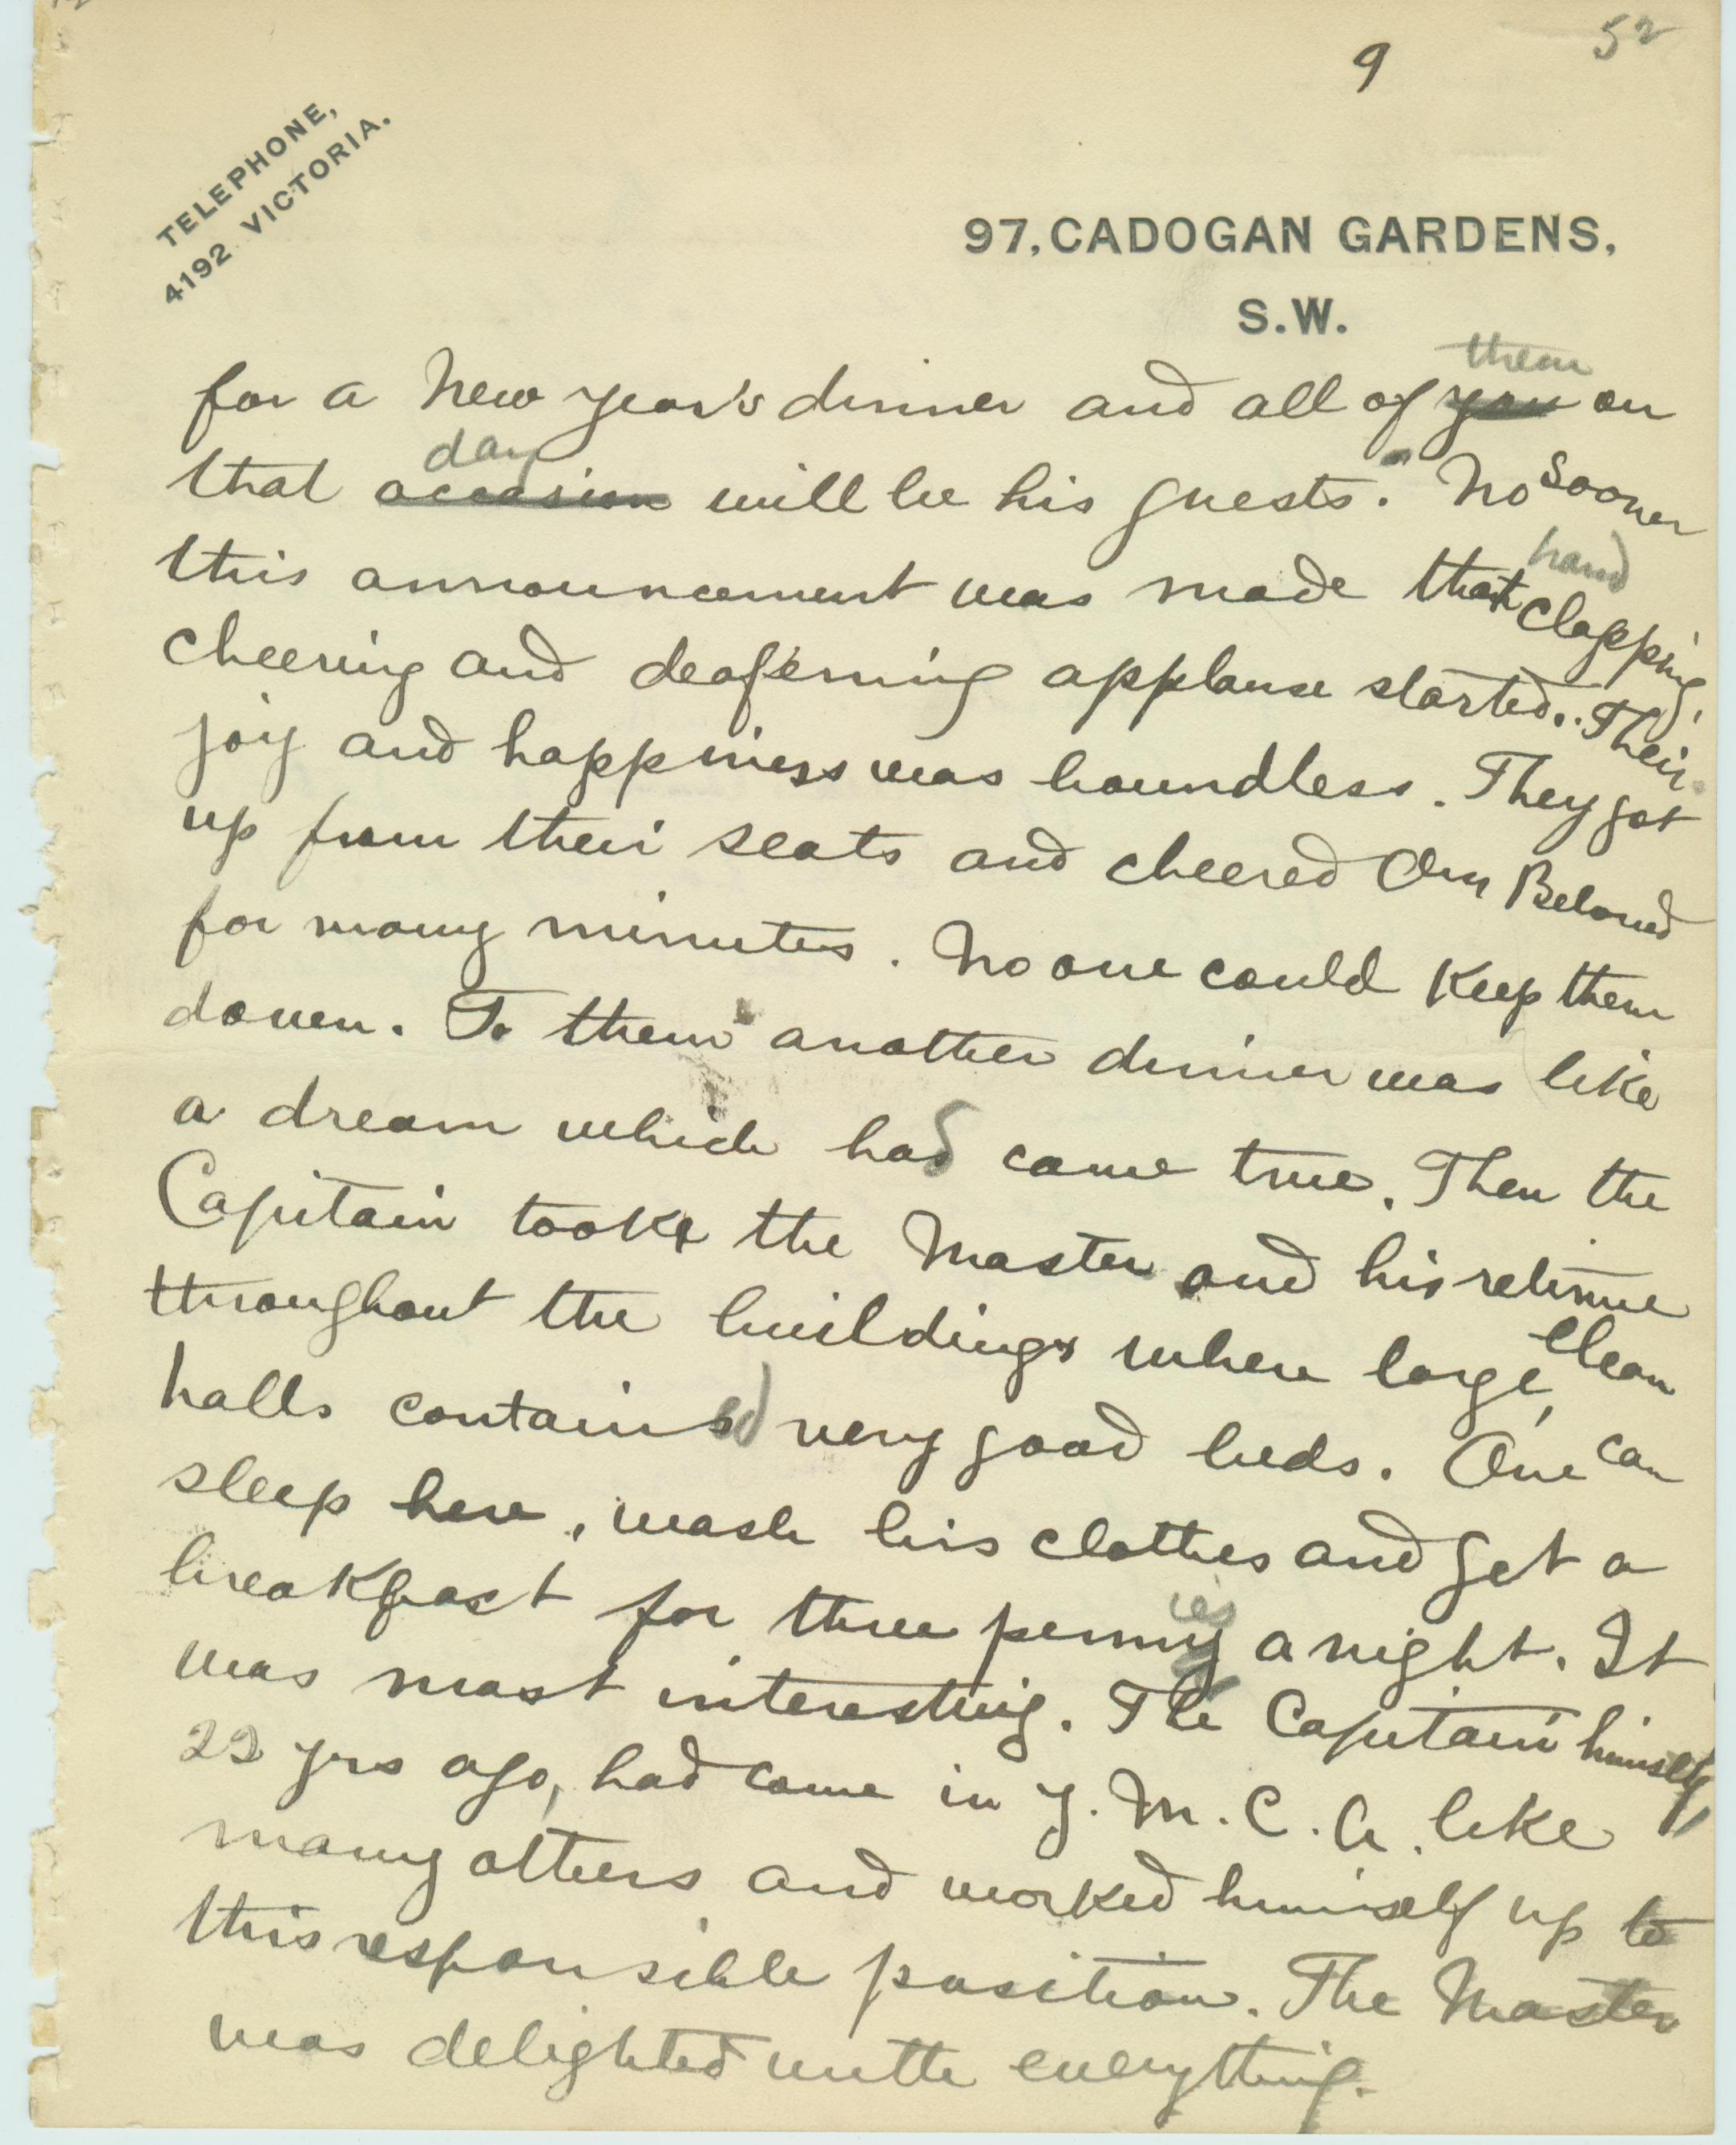 52
9
TELEPHONE,
4192 VICTORIA.
97, CADOGAN GARDENS,
S.W.
them
for a New year's dinner and all of you on
day
that occasion will be his guests." No sooner
hand
this announcement was made that clapping,
cheering and deafening applause started. Their
joy and happiness was boundless. They got
up from their seats and cheered Our Beloved
for many minutes. No one could keep them
down. To them another dinner was like
a dream which had come true. Then the
Capitain took the Master and his retinue
throughout the buildings where large, clean
halls contained very good beds. One can
sleep here, wash his clothes and get a
breakfast for three pennies a night. It
was most interesting. The Capitain himself,
22 yrs ago, had come in Y.M.C.A. like
many others and worked himself up to
this responsible position. The Master
was delighted with everything.